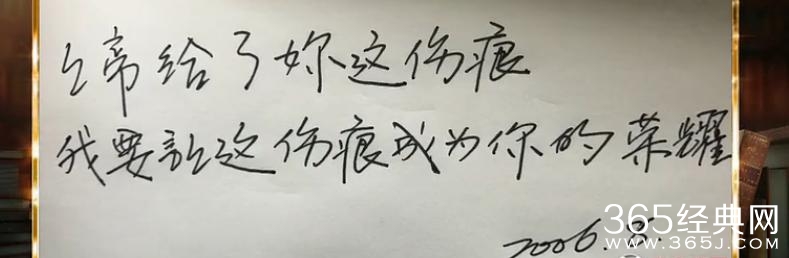 上帝给了妳这伤痕
我要让这伤痕成为你的荣耀
2006.8.
365经典网
www.365J.com